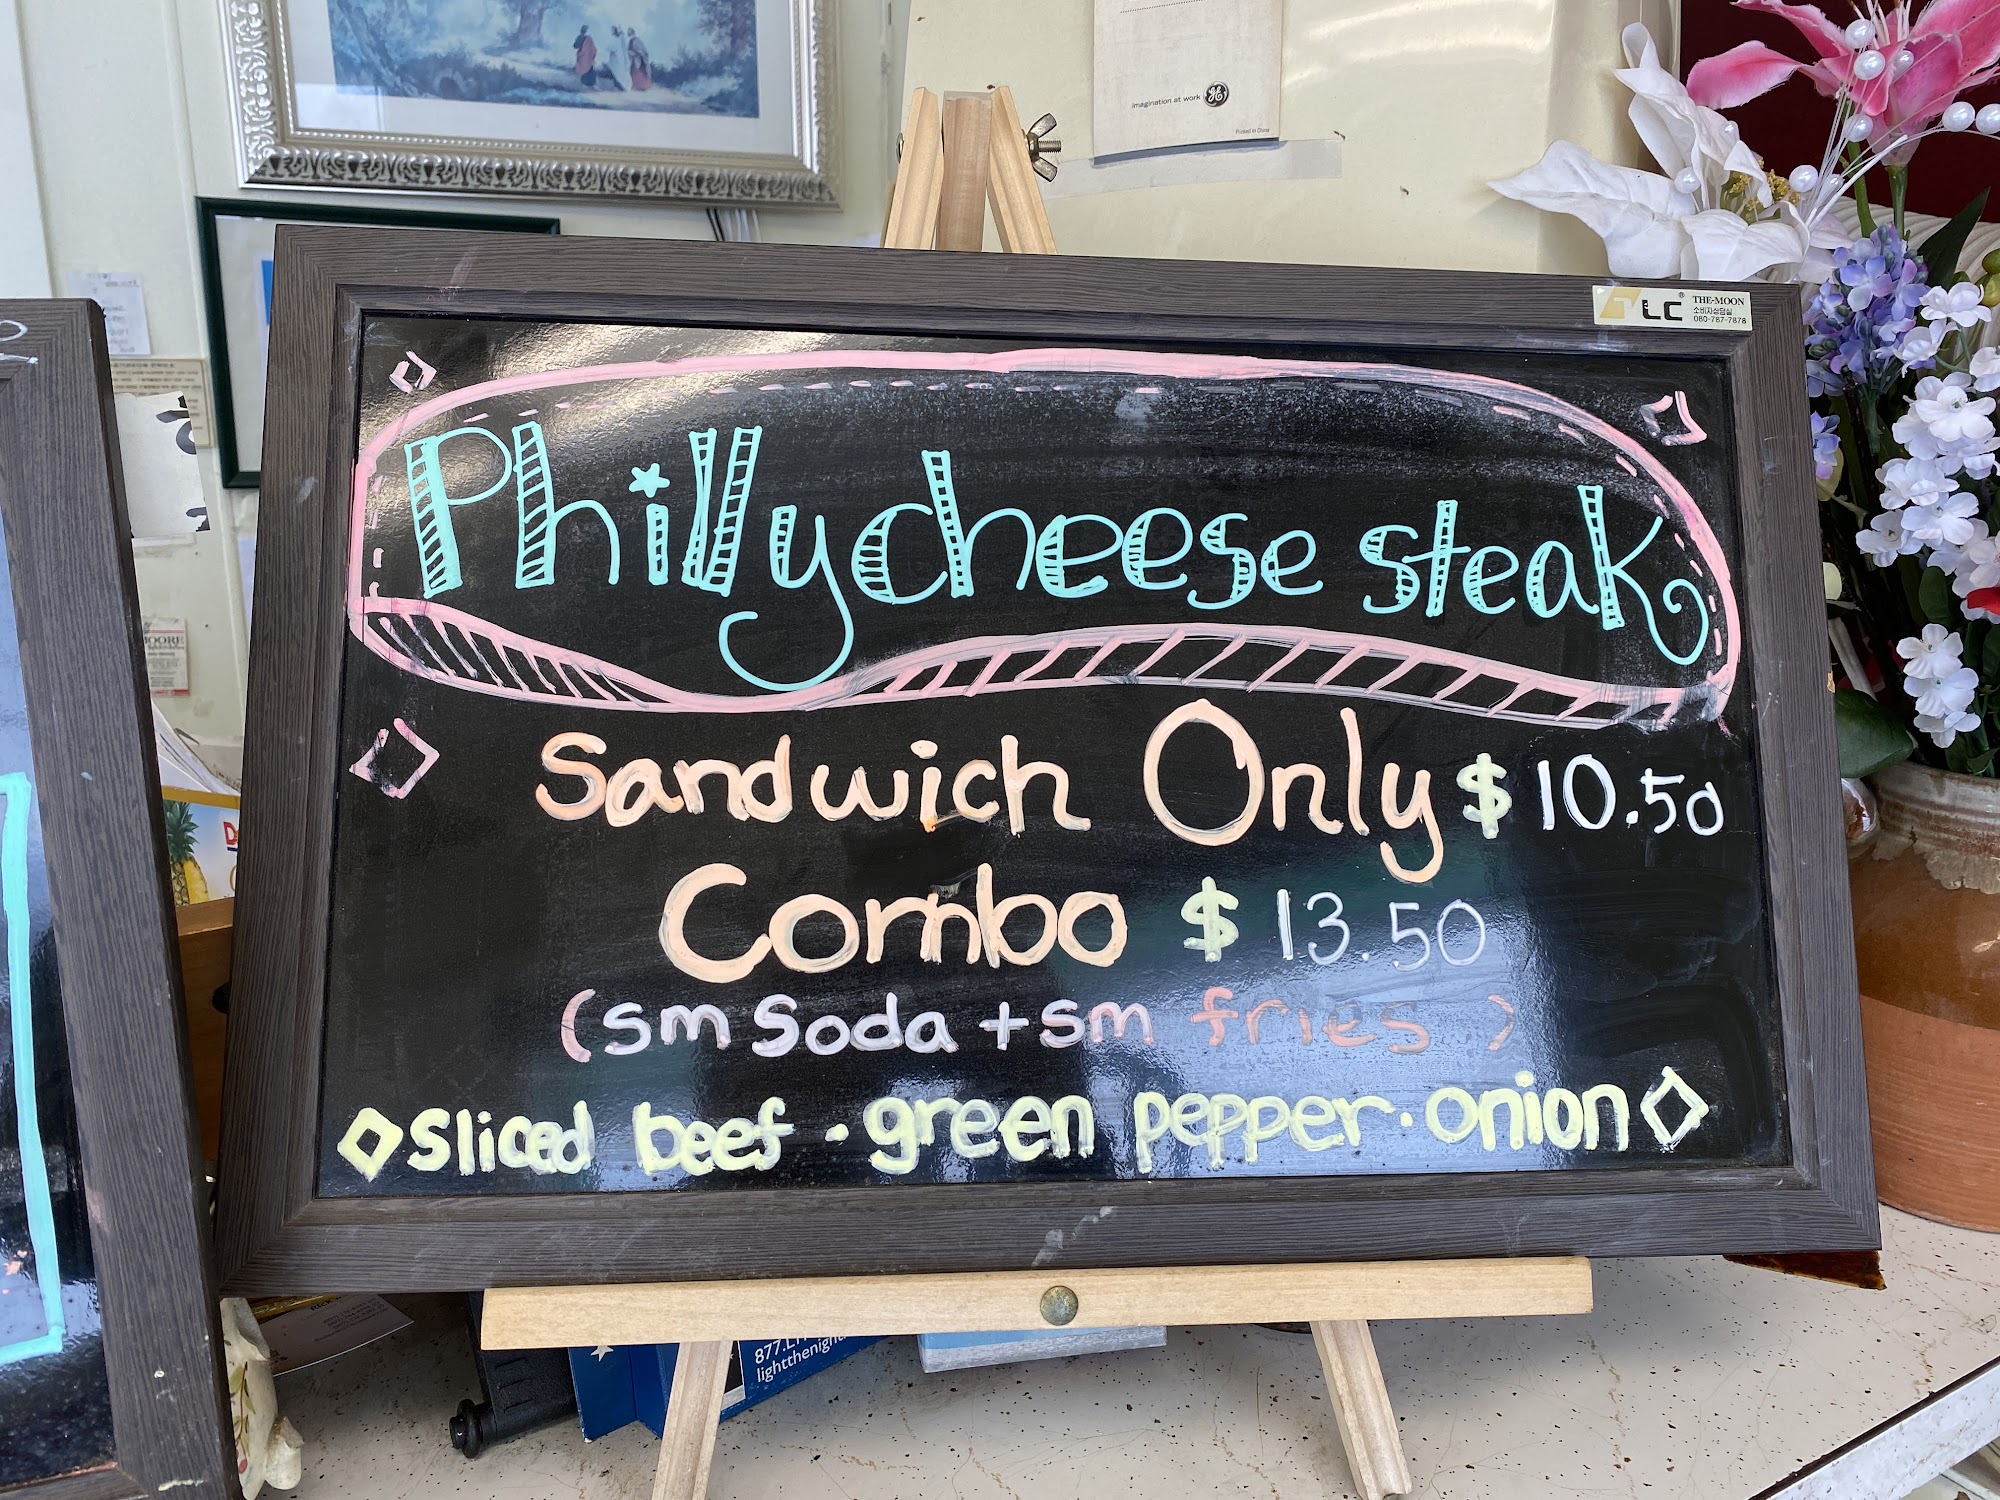 imagination at work
Printed in China
LC® THE-MOON
소비자상담실
080-787-7878
Philly cheese steak
Sandwich Only $10.50
Combo $13.50
(sm soda + sm fries)
sliced beef · green pepper · onion
877.LT
lightthenight